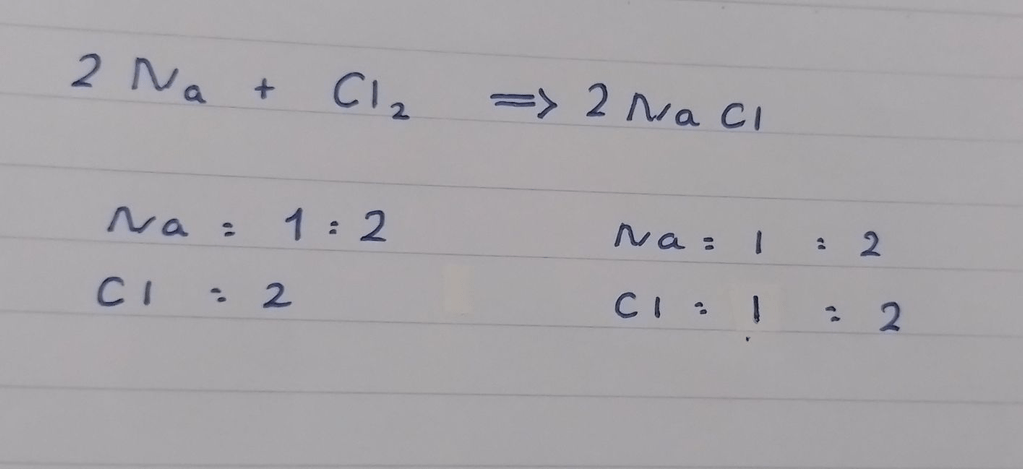 2 Na + Cl₂ => 2 NaCl
Na = 1 : 2 Na = 1 : 2
Cl = 2 Cl = 1 : 2